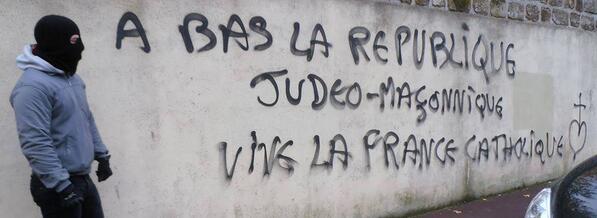 A BAS LA REPUBLIQUE
JUDEO-MAÇONNIQUE
VIVE LA FRANCE CATHOLIQUE